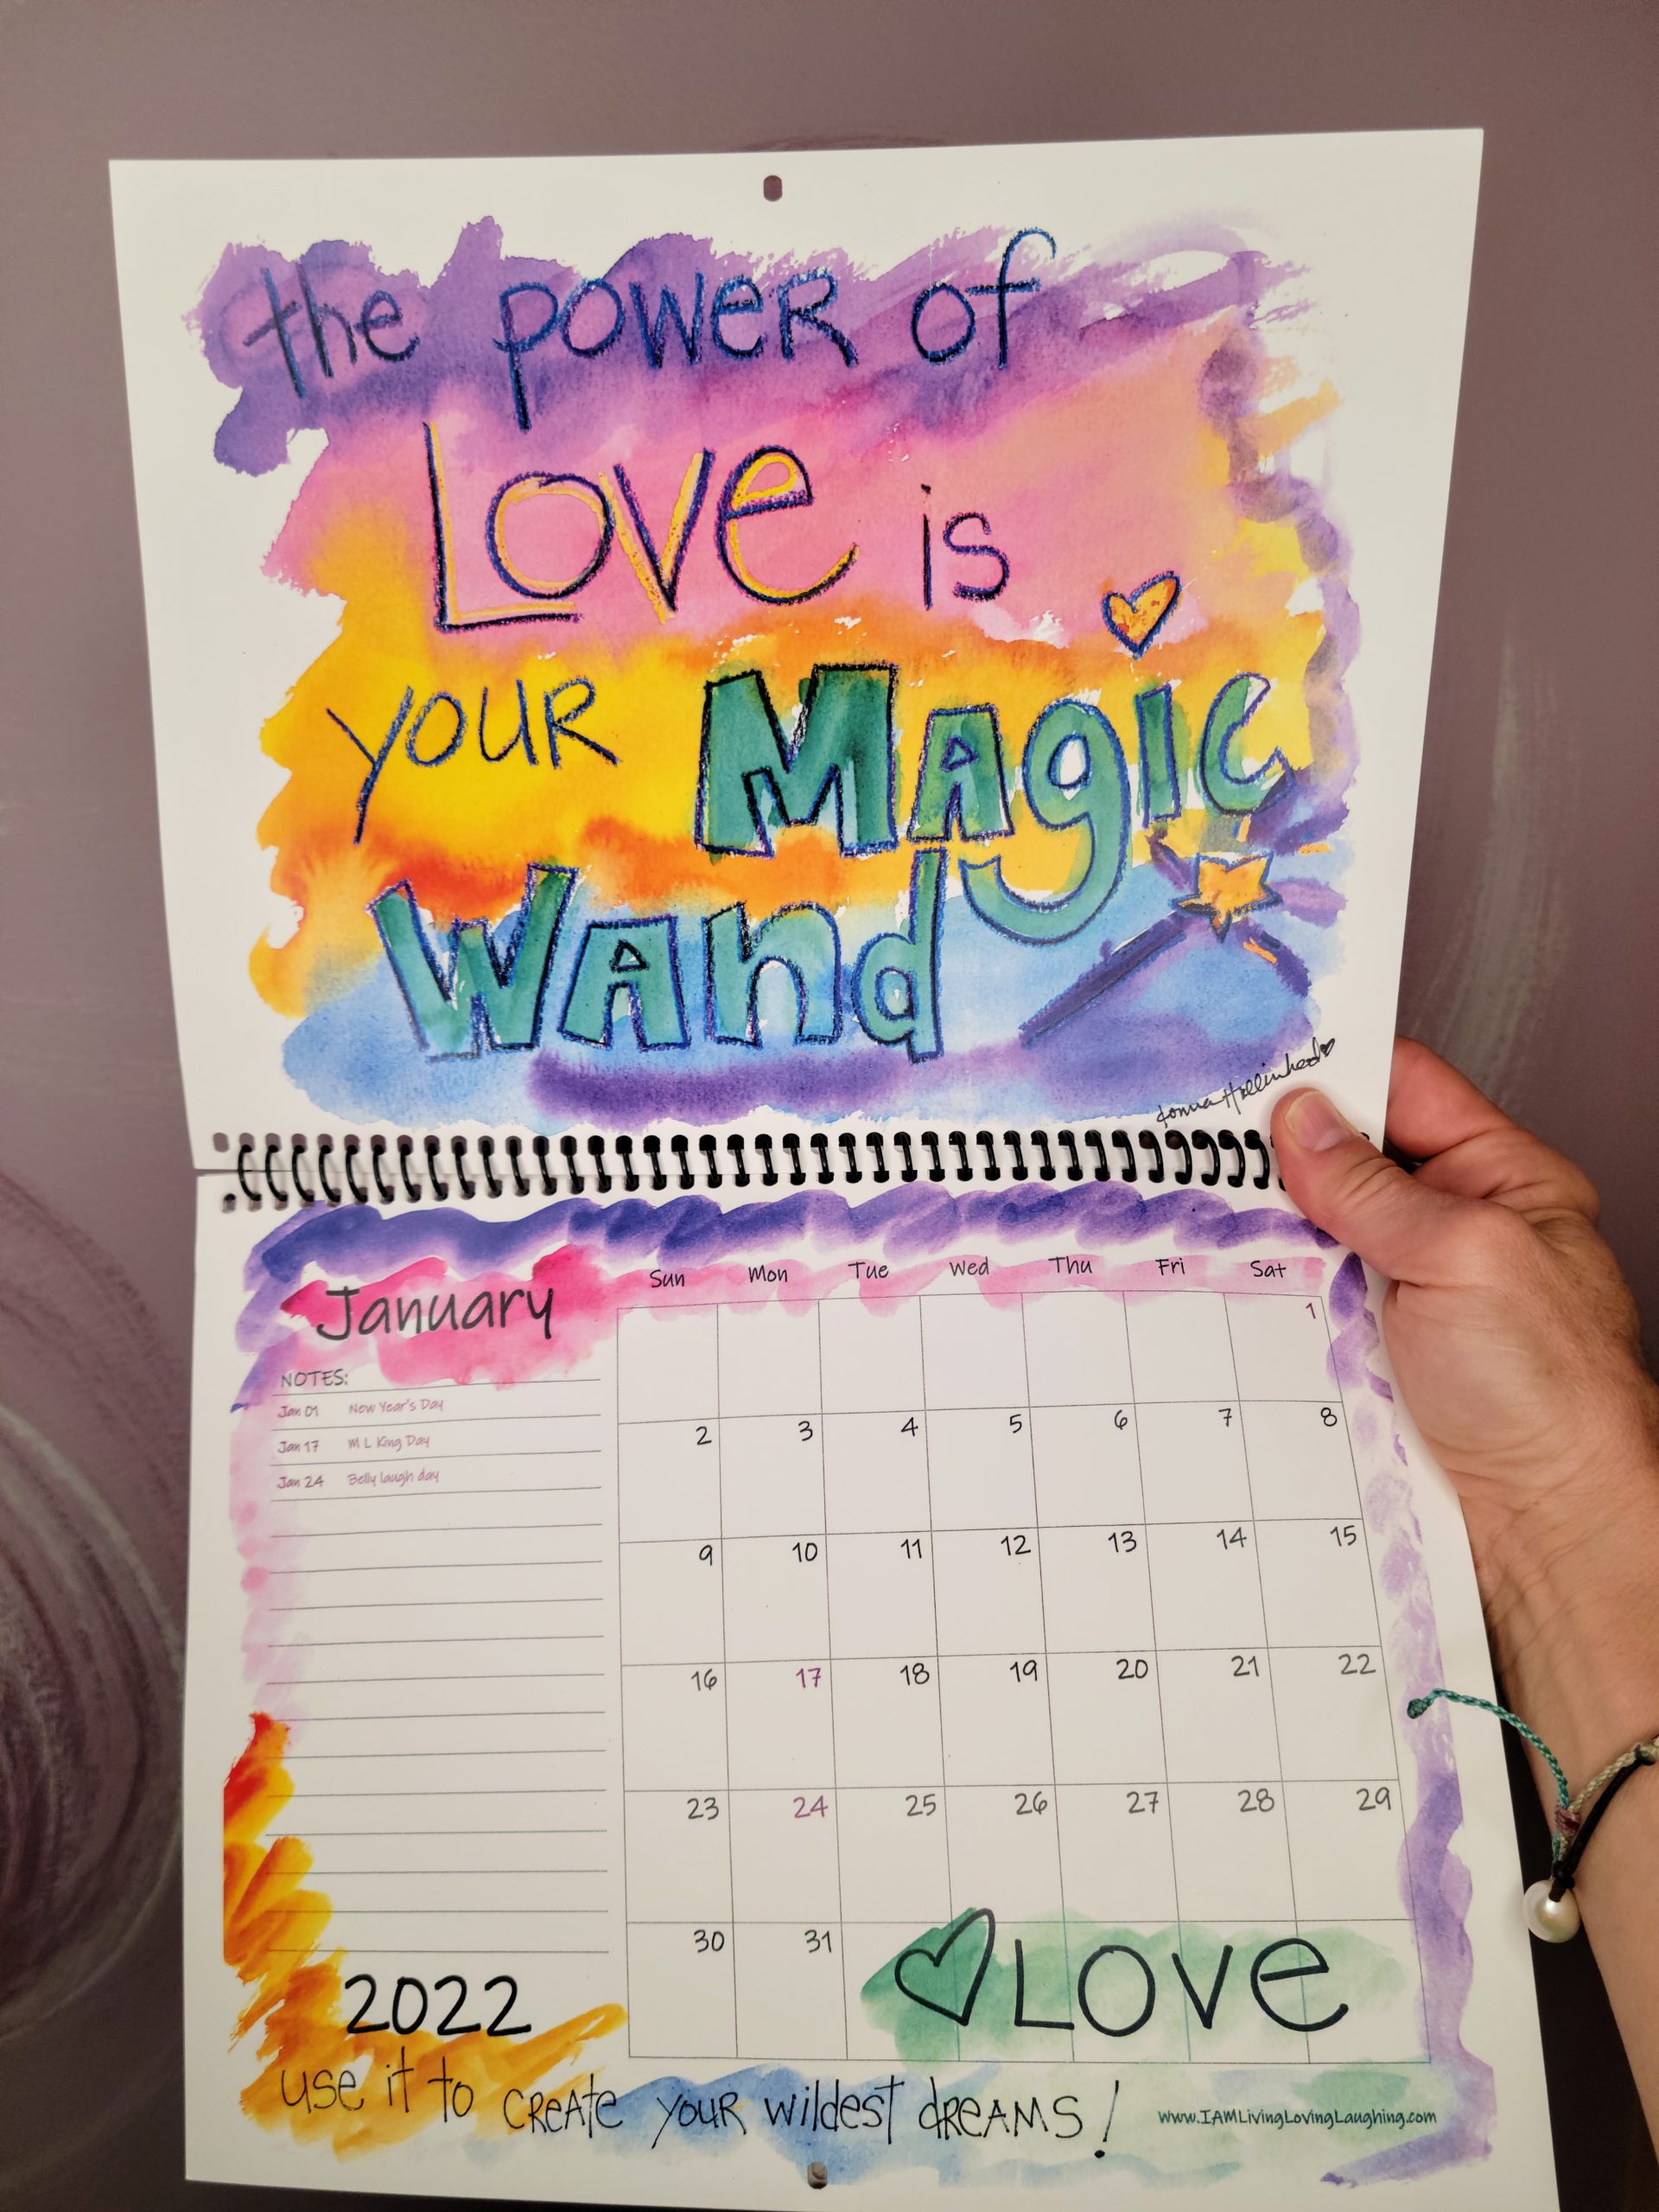 the power of
Love is
your Magic
Wand
Donna Hollinhead
January
Sun Mon Tue Wed Thu Fri Sat
NOTES:
Jan 01 New Year's Day
Jan 17 M L King Day
Jan 24 Belly laugh day
1
2 3 4 5 6 7 8
9 10 11 12 13 14 15
16 17 18 19 20 21 22
23 24 25 26 27 28 29
30 31
LOVe
2022
use it to CReAte YOUR wildest dReAMS!
www.IAMLivingLovingLaughing.com